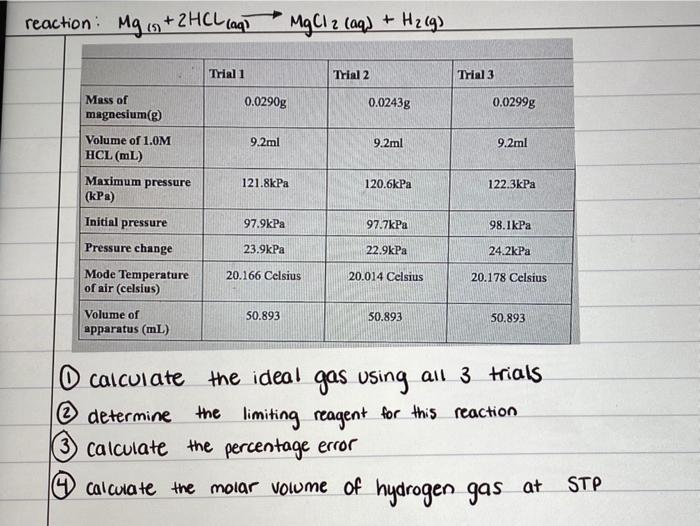 reaction: Mg (s) + 2HCL (aq) → MgCl2 (aq) + H2 (g)
Trial 1 Trial 2 Trial 3
Mass of magnesium(g) 0.0290g 0.0243g 0.0299g
Volume of 1.0M HCL (mL) 9.2ml 9.2ml 9.2ml
Maximum pressure (kPa) 121.8kPa 120.6kPa 122.3kPa
Initial pressure 97.9kPa 97.7kPa 98.1kPa
Pressure change 23.9kPa 22.9kPa 24.2kPa
Mode Temperature of air (celsius) 20.166 Celsius 20.014 Celsius 20.178 Celsius
Volume of apparatus (mL) 50.893 50.893 50.893
① calculate the ideal gas using all 3 trials
② determine the limiting reagent for this reaction
③ calculate the percentage error
④ calculate the molar volume of hydrogen gas at STP